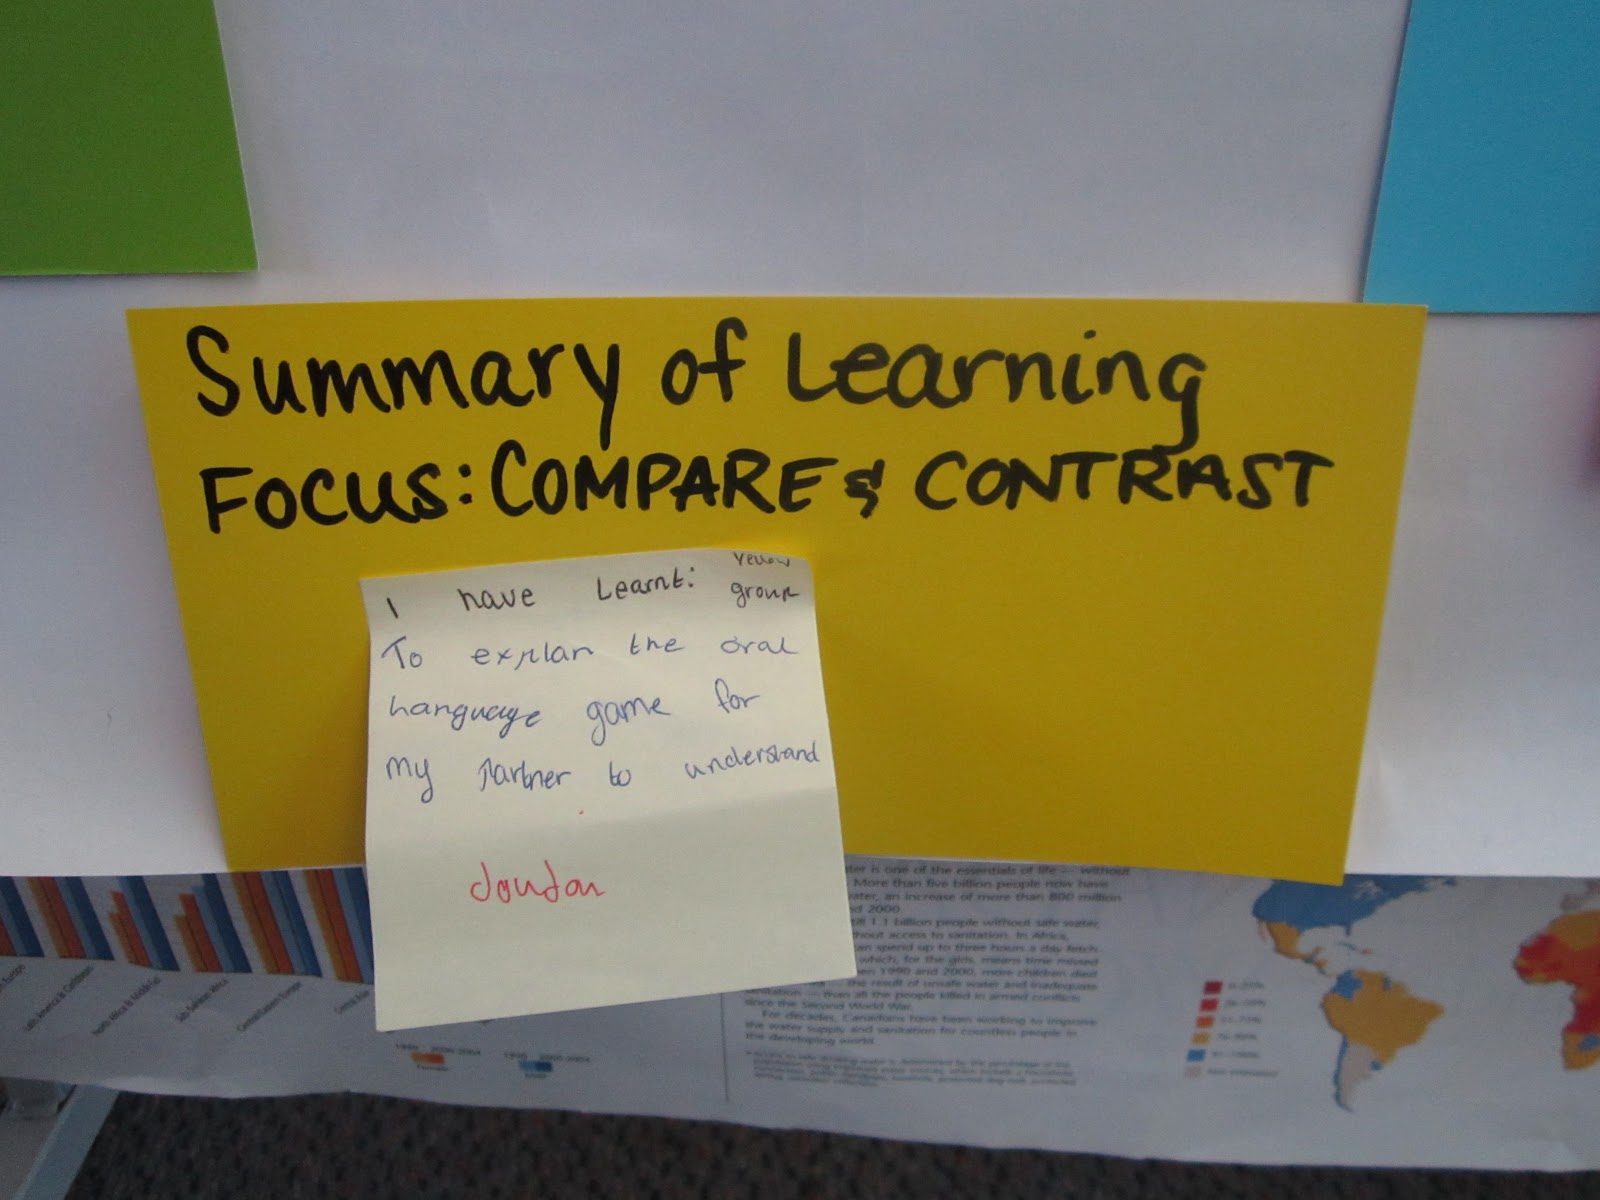 Summary of Learning
FOCUS: COMPARE & CONTRAST
Yellow
I have Learnt: group
To explan the oral
language game for
my partner to understand
ter is one of the essentials of life — without
More than five billion people now have
ater, an increase of more than 800 million
d 2000.
till 1.1 billion people without safe water,
hout access to sanitation. In Africa,
can spend up to three hours a day fetch
which, for the girls, means time missed
en 1990 and 2000, more children died
the result of unsafe water and inadequate
sanitation — than all the people killed in armed conflicts
since the Second World War.
For decades, Canadians have been working to improve
the water supply and sanitation for countless people in
the developing world.
Latin America & Caribbean
North Africa & Middle East
Sub-Saharan Africa
Central/Eastern Europe